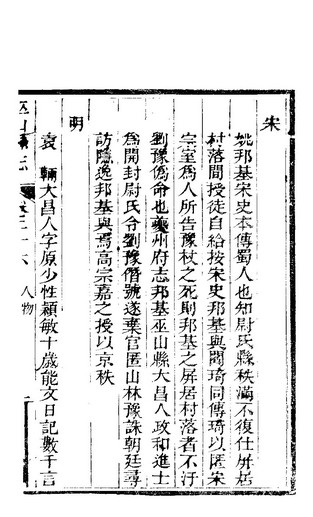 宋
姚邦基宋史本傳蜀人也知尉氏縣秩滿不復仕屏居
村落間授徒自給按宋史邦基與閻琦同傳琦以匿宋
宗室為人所告豫杖之死則邦基之屏居村落者不汙
劉豫偽命也夔州府志邦基巫山縣大昌人政和進士
為開封尉氏令劉豫僭號遂棄官匿山林豫誅朝廷尋
訪隱逸邦基與焉高宗嘉之授以京秩
明
袁 輛大昌人字原少性穎敏十歲能文日記數千言
巫山縣志 卷之十六 人物 一